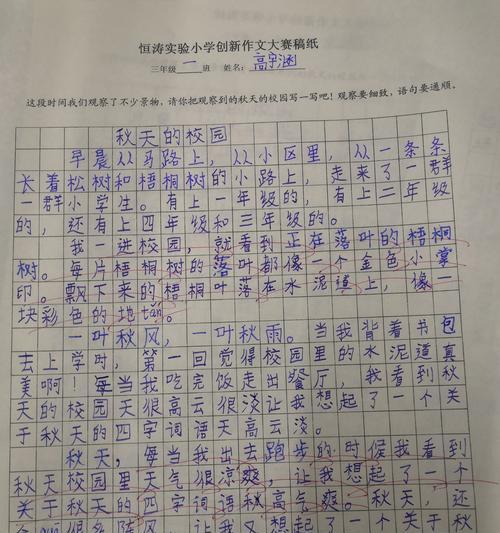 恒涛实验小学创新作文大赛稿纸
三年级一班 姓名:高宇涵
这段时间我们观察了不少景物,请你把观察到的秋天的校园写一写吧!观察要细致,语句要通顺。
秋天的校园
早晨从马路上,从小区里,从一条条
长着松树和梧桐树的小路上,走来了一群
一群小学生。有上一年级的,有上二年级
的,还有上四年级和三年级的。
我一进校园,就看到正在落叶的梧桐
树。每片梧桐树的落叶都像一个金色小掌
印。飘下来的梧桐叶落在水泥道上,像一
块彩色的地tǎn。
一叶秋风,一叶秋雨。当我背着书包
去上学时,第一回觉得校园里的水泥道真
美啊!每当我吃完饭走出餐厅,我看到秋
天的校园天很高云很淡让我想起了一个关
于秋天的四字词语天高云淡。
秋天,每当我出去跑步的时候我看到
秋天校园里天气很凉爽,让我想起了一个
关于秋天的四字词语秋高气爽。秋天,还
让我又想起了一个关于秋